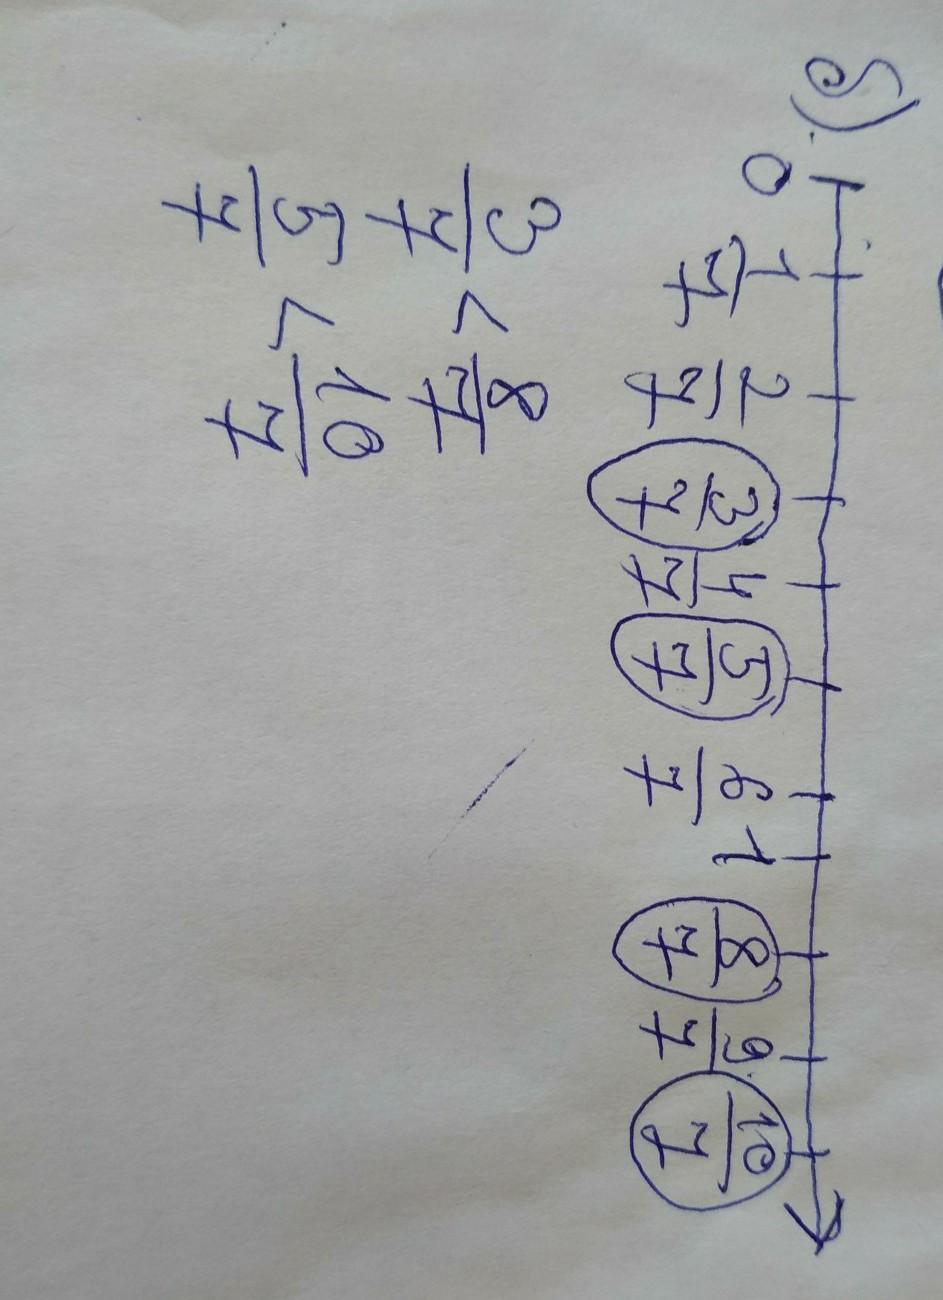 б)
0 1/7 2/7 3/7 4/7 5/7 6/7 1 8/7 9/7 10/7
3/7 < 8/7
5/7 < 10/7